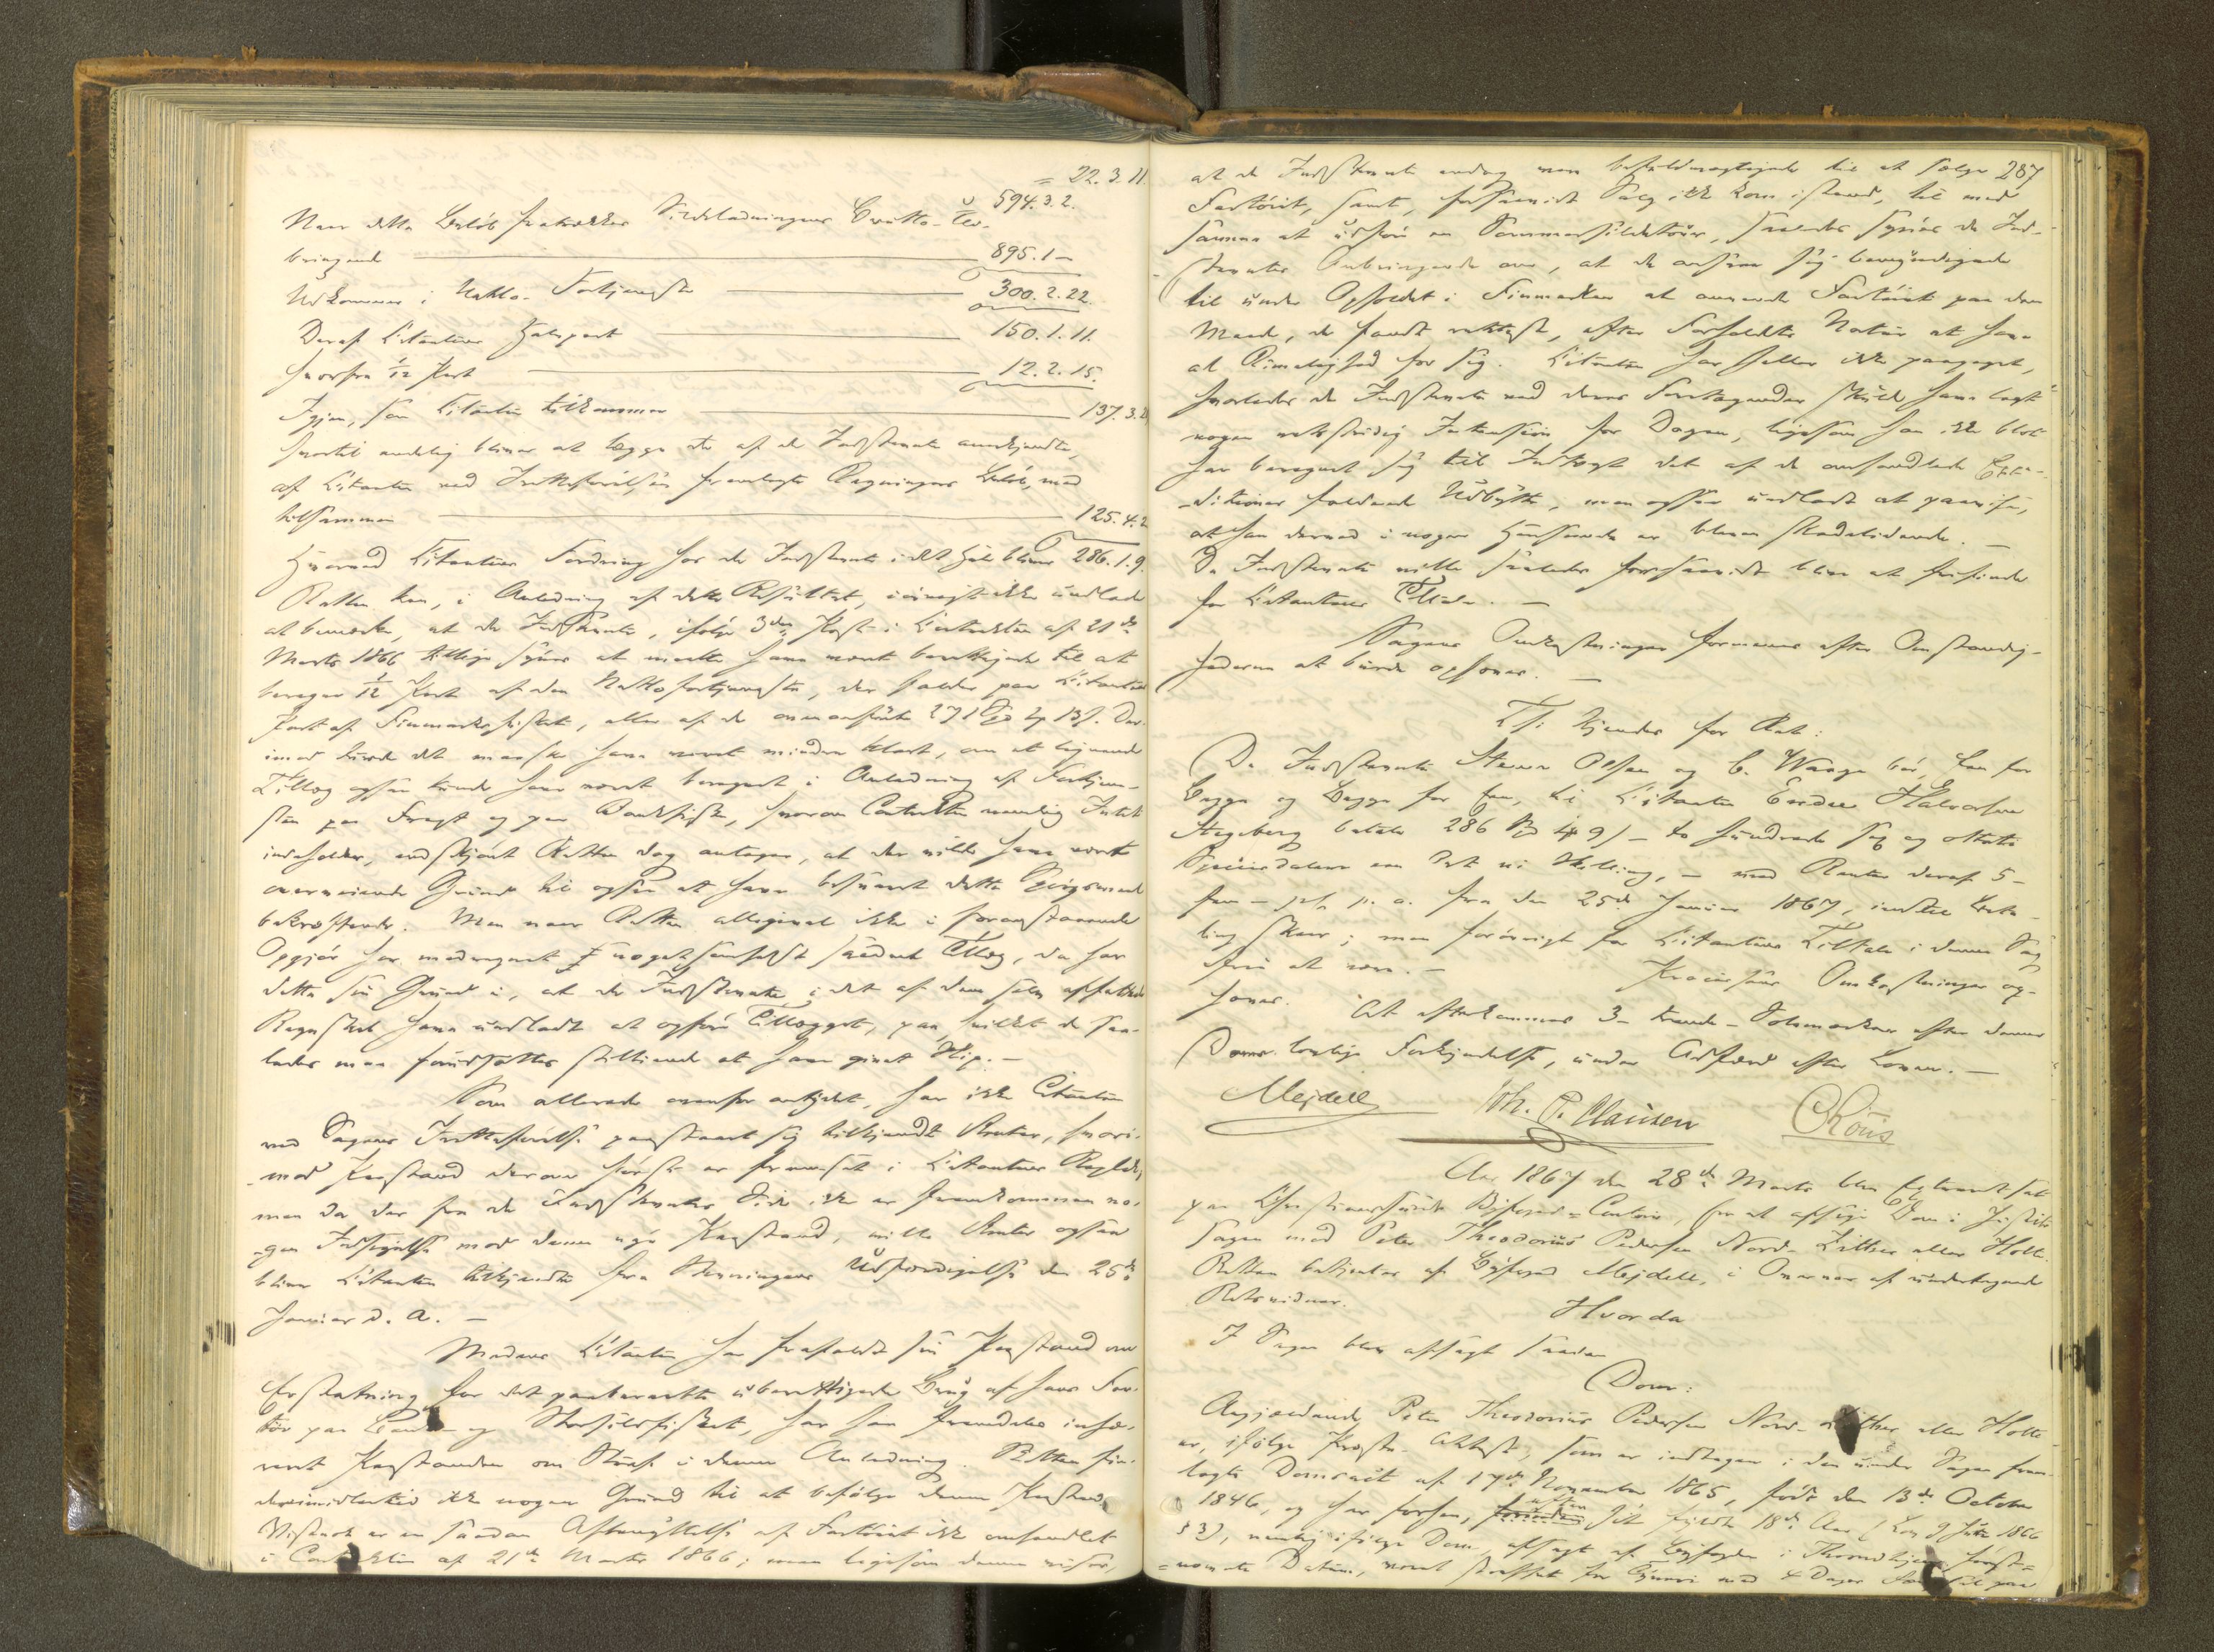 = 22. 3. 11.
594. 3. 2.
Naar dette Beløb fratrækkes Sildeladningens Brutto-Ud-
bringende 895. 1 –
Udkommer i Netto-Fortjeneste 300. 2. 22.
Deraf Citantens Halvpart 150. 1. 11.
hvorfra 1/12 Part 12. 2. 15.
Igjen, som Citanten tilkommer 137. 3.
hvortil endelig bliver at lægge de af de Indstevnte anerkjendte,
af Citanten ved Inkaminationen fremlagte Regningers Beløb, med
tilsammen 125. 4. 2
Hvorved Citantens Fordring hos de Indstevnte i det Hele bliver 286. 1. 9.
Retten kan, i Anledning af dette Resultat, iøvrigt ikke undlade
at bemærke, at de Indstevnte, ifølge 3die Post i Contracten af 21de
Marts 1866 tillige synes at maatte have været berettigede til at
beregne 1/12 Part af den Nettofortjeneste, der falder paa Citantens
Part af Finmarksfisket, eller af de ovenanførte 271 Spd 4 13 s. Der-
imod turde det maaske have været mindre klart, om et lignende
Tillæg ogsaa kunde have været beregnet i Anledning af Fortjene-
sten paa Fragt og paa Bankfisket, hvorom Contracten nemlig Intet
indeholder, endskjønt Retten dog antager, at der vilde have været
overveiende Grund til ogsaa at have besvaret dette Spørgsmaal
bekræftende. Men naar Retten alligevel ikke i foranstaaende
Opgjør har medregnet nogetsomhelst saadant Tillæg, da har
dette sin Grund i, at de Indstevnte i det af dem selv affattede
Regnskab have undladt at opføre Tillægget, paa hvilket de saa-
ledes maa forudsættes stiltiende at have givet Slip. –
Som allerede ovenfor antydet, har ikke Citanten
ved Sagens paastaaet sig tilkjendt Renter, hvori-
mod Paastand derom først er fremsat i Citantens Replik;
men da der fra de Indstevntes Side ikke er fremkommen no-
gen Indsigelse mod denne nye Paastand, ville Renter ogsaa
blive Citanten tilkjendte fra Stevningens Udstedelse den 25de
Januar d. A. –
Medens Citanten har frafaldt sin Paastand om
Erstatning for det paaberaabte uberettigede Brug af hans Far-
tøi paa Bank- og Storsildfisket, har han fremdeles
Paastanden om Straf i denne Anledning. Retten fin-
der imidlertid ikke nogen Grund til at befølge denne Paastand.
Vistnok er en saadan Afbenyttelse af Fartøiet ikke omhandlet
i Contracten af 21de Marts 1866; men ligesom denne viser,
287
at de Indstevnte endog vare befuldmægtigede til at sælge
Fartøiet, samt, forsaavidt Salg ikke kom istand, til med
samme at udføre en Sommersildetour, saaledes synes de Ind-
stevntes Anbringende om, at de ansaa sig bemyndigede
til under Opholdet i Finmarken at anvende Fartøiet paa den
Maade, de fandt rettest, efter Forholdets Natur at have
al Rimelighed for sig. Citanten har heller ikke paapeget,
hvorledes de Indstevnte ved deres Foretagender skulde have lagt
nogen retsstridig Intention for Dagen, ligesom han ikke blot
har beregnet sig til Indtægt det af de omhandlede Expe-
ditioner faldende Udbytte, men ogsaa undladt at paavise,
at han derved i nogen Henseende er bleven skadelidende. –
De Indstevnte ville saaledes forsaavidt blive at frifinde
for Citantens Tiltale. –
Sagens Omkostninger formenes efter Omstændig-
hederne at burde ophæves. –
Thi kjendes for Ret:
De Indstevnte Steen Olsen og C. Waage bør, Een for
Begge og Begge for Een, til Citanten Endre Halvorsen
Hegeberg betale 286 Spd 1 9 s – to hundrede sex og otteti
Speciedaler een Ort ni Skilling, – med Renter deraf 5 –
fem – pct. p. a. fra den 25de Januar 1867, indtil Beta-
ling skeer; men forøvrigt for Citantens Tiltale i denne Sag
frie at være. – Processens Omkostninger op-
hæves. At efterkommes 3 – trende – Solemærker efter denne
Doms lovlige Forkyndelse, under Adfærd efter Loven. –
Mejdell Joh. P. Clausen CRous
Aar 1867 den 28de Marts blev Extraret sat
paa Christianssunds Byfoged-Contoir, for at afsige Dom i Justits-
Sagen mod Peter Theodorius Pedersen Nord-Littsee eller Holte.
Retten betjentes af Byfoged Mejdell, i Overvær af undertegnede
Retsvidner.
Hvorda
I Sagen blev afsagt saadan
Dom:
Angjældende Peter Theodorius Pedersen Nord- eller Holte
er, ifølge Præste-Attest, som er indtagen i den under Sagen frem-
lagte Domsact af 17de November 1865, født den 13de October
1846, og har forhen, efter sit fyldte 18de Aar (Lov 9 Juni 1866
§ 3), nemlig ifølge Dom, afsagt af Byfogden i Throndhjem først-
nævnte Datum, været straffet for Tyveri med 4 Dages paa